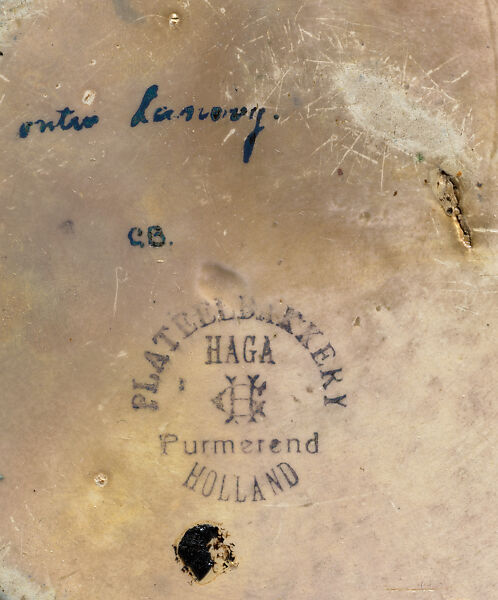 ontw Lanooy.
CB.
PLATEELBAKKERY
HAGA
H
Purmerend
HOLLAND